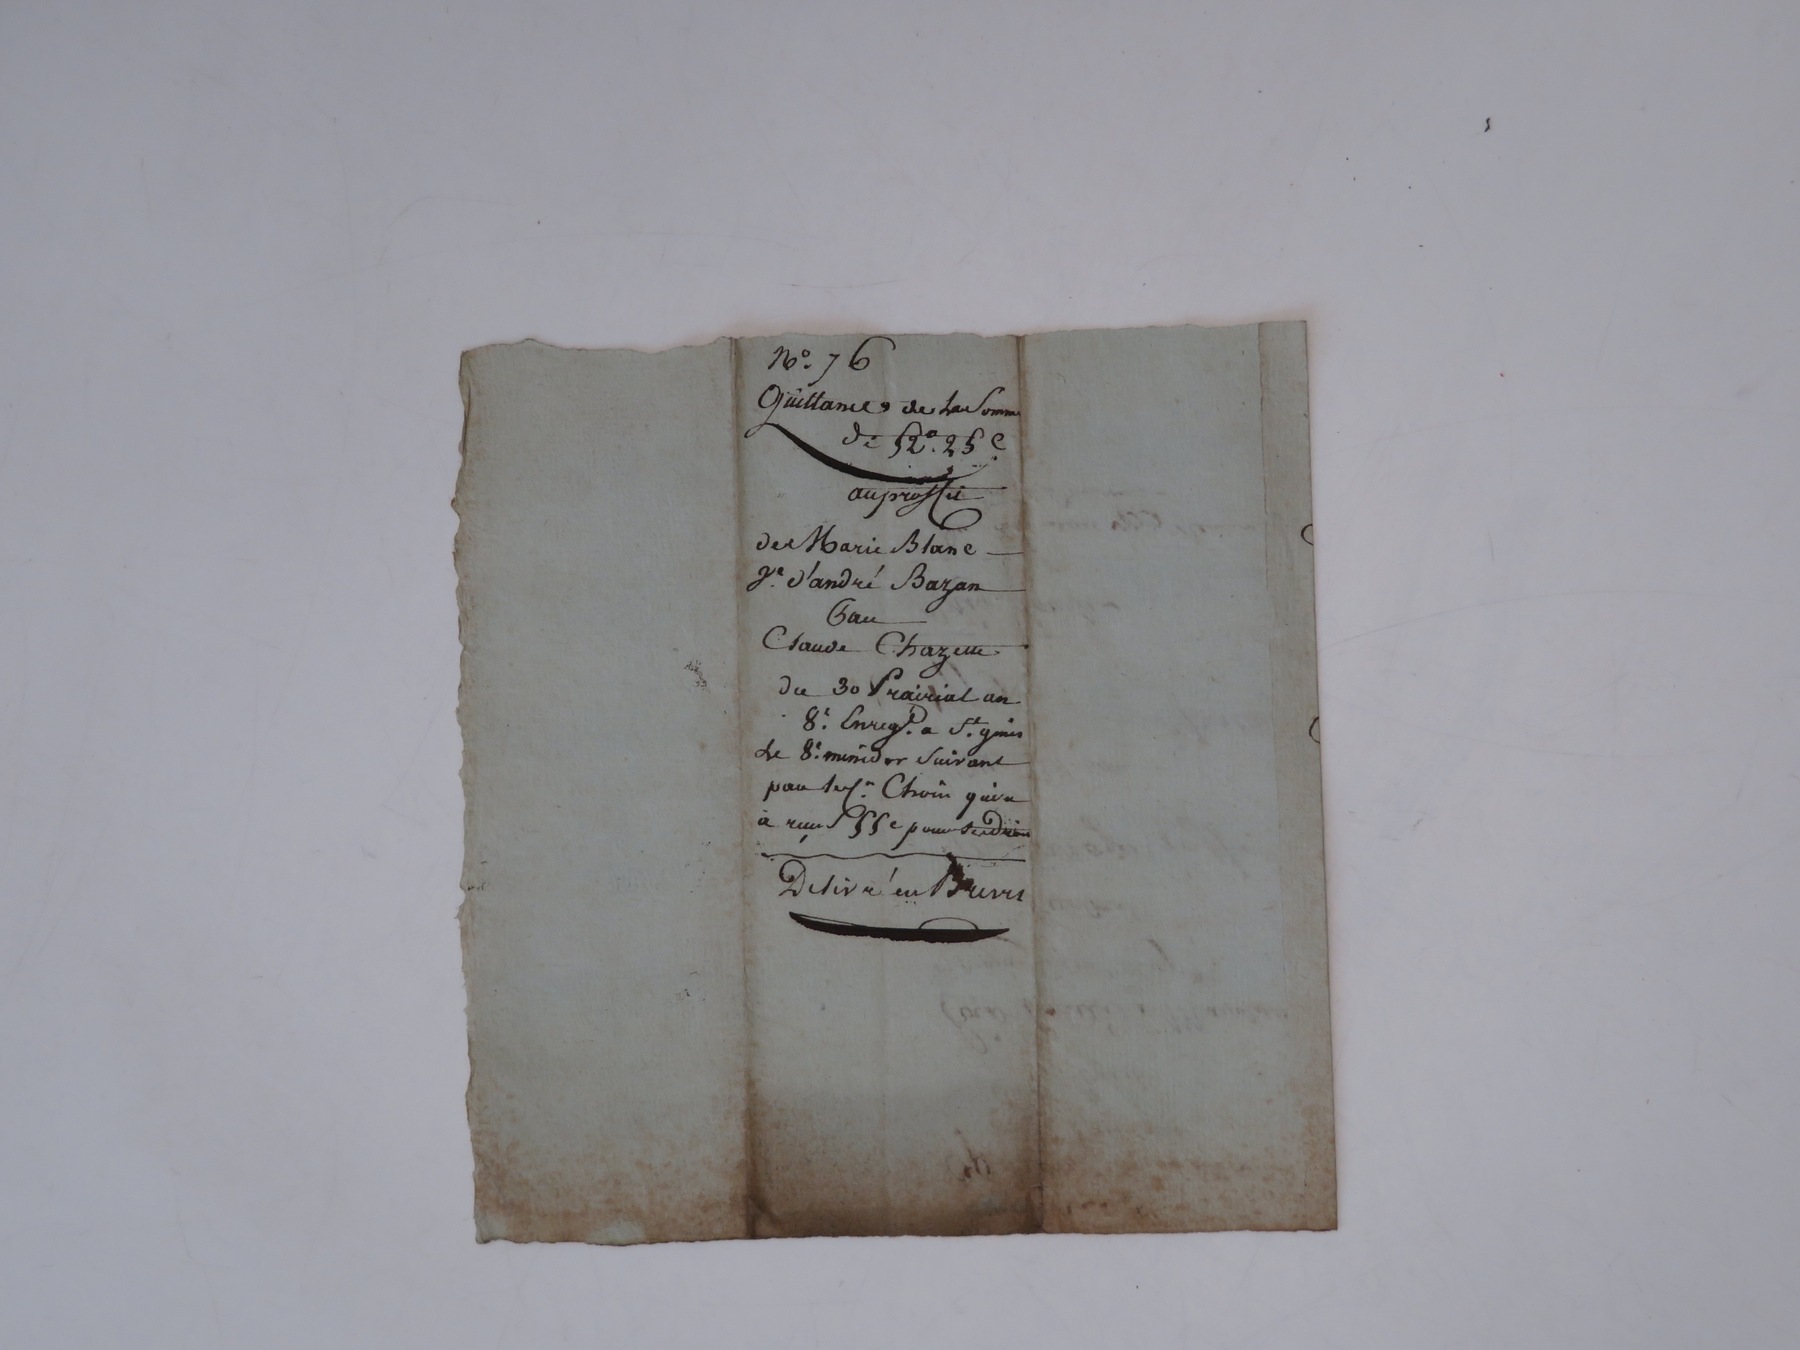 N.° 76
Quittance de La Somme
de 52ᶠ. 25ᶜ
au proffit
de Marie Blanc
vᵉ. d'andré Bazan
Par
Claude Chazette
du 30 Prairial an
8ᵉ. Enregᵈ. a Sᵗ. genis
Le 8ᵉ. messidor Suivant
par le Cⁿ. Choin qui a
a reçu 55ᶜ pour Les Droits
Delivré en Brevet